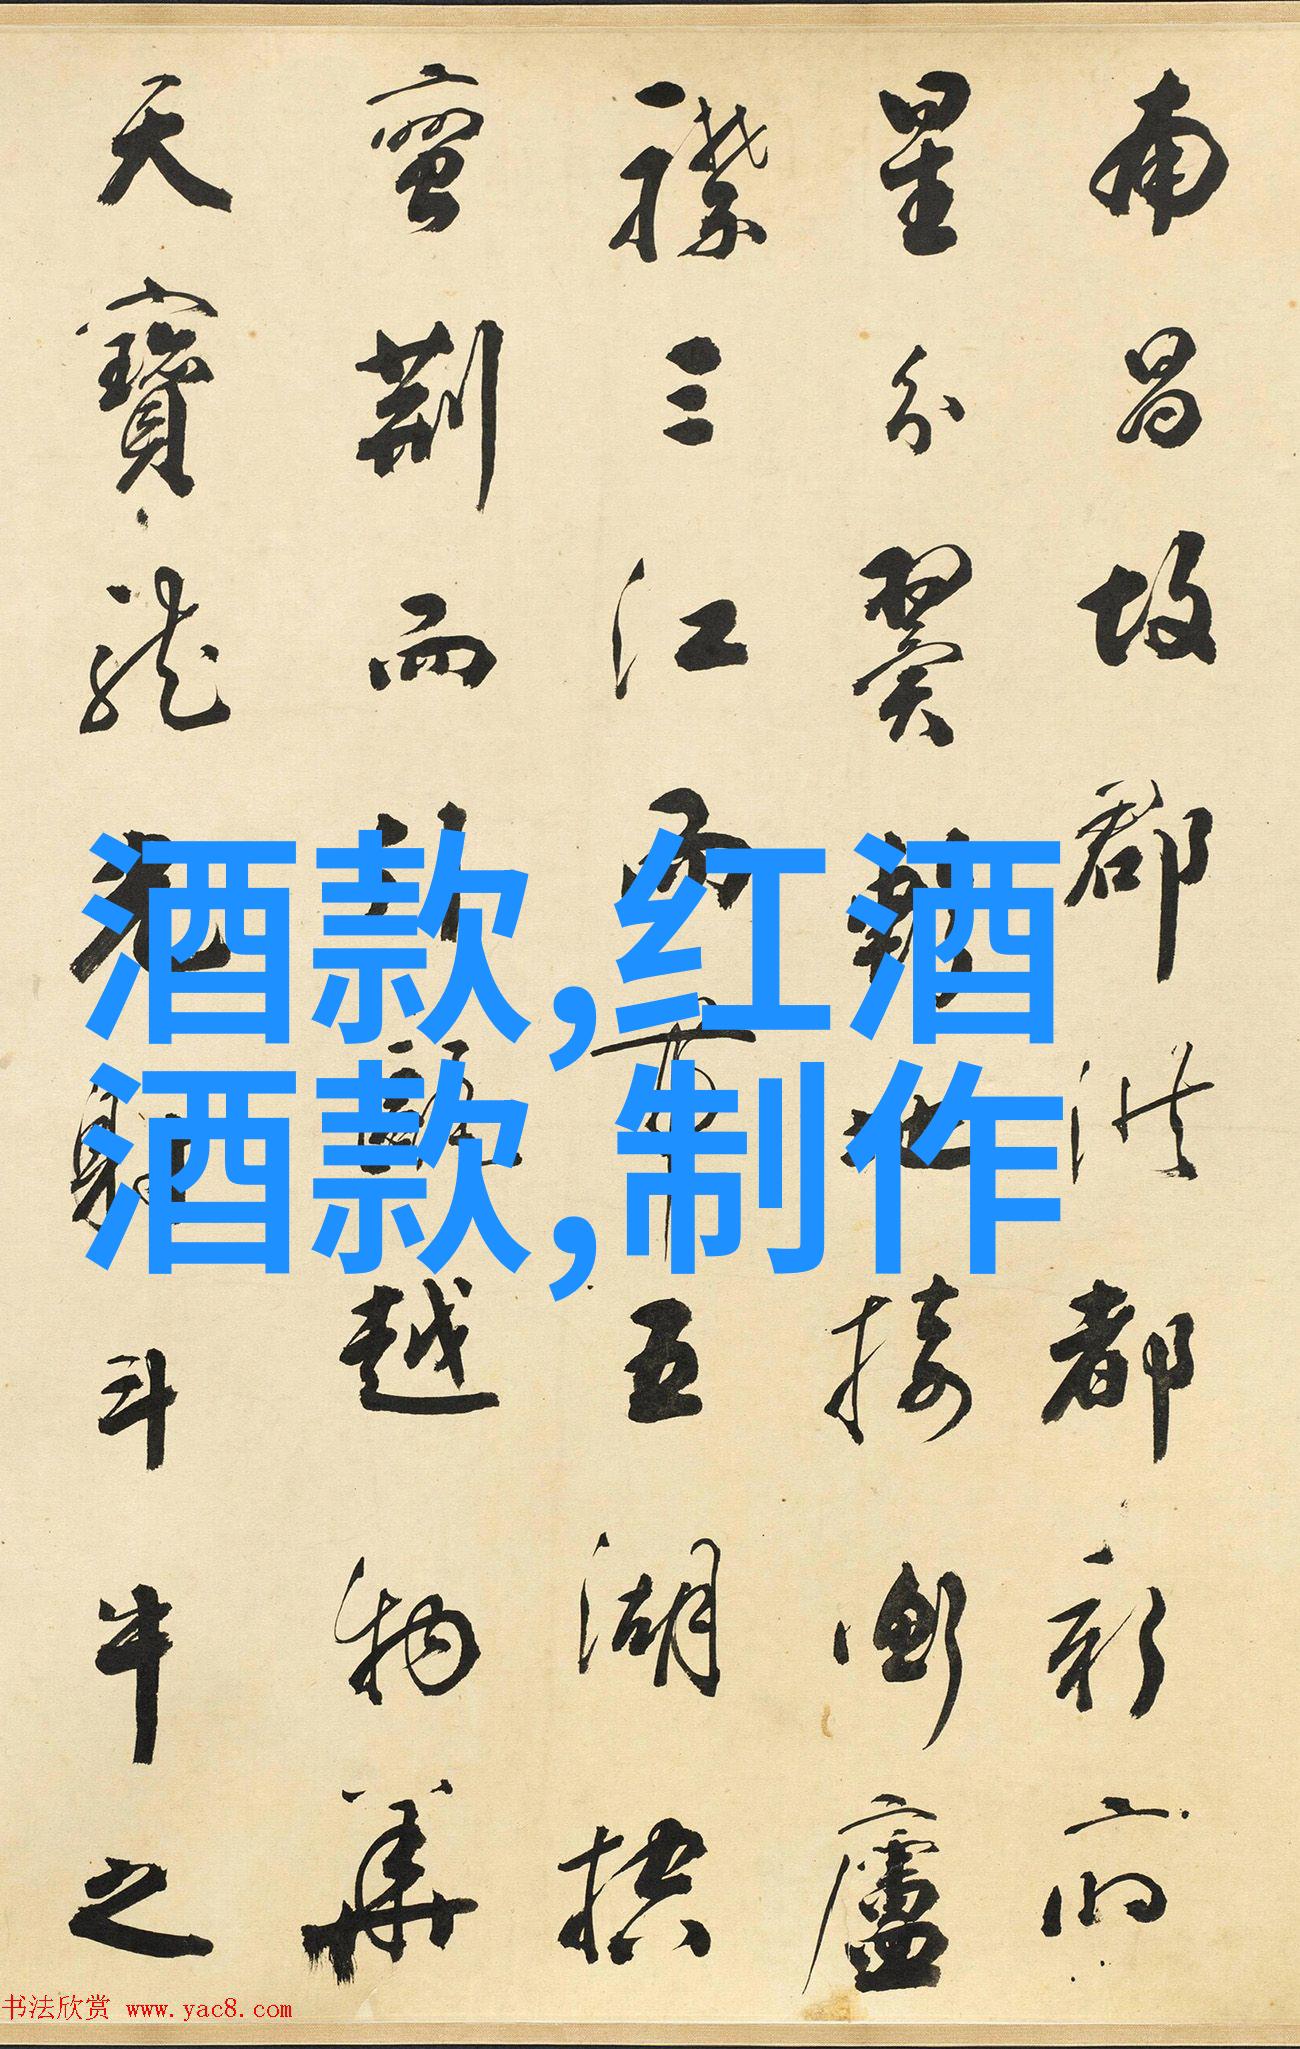 南昌故郡洪都新府
星分翼軫地接衡廬
襟三江而帶五湖控
蠻荊而引甌越物華
天寶龍光射斗牛之
酒款,红酒
酒款,制作
书法欣赏 www.yac8.com